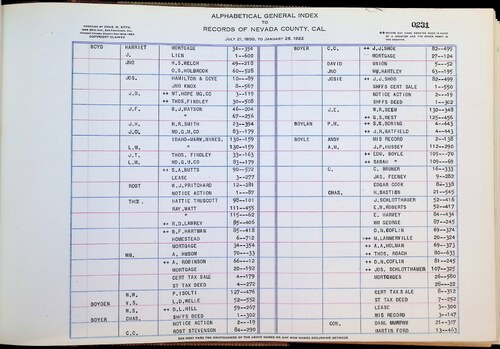 ALPHABETICAL GENERAL INDEX
TO
RECORDS OF NEVADA COUNTY, CAL.
JULY 21, 1899, TO JANUARY 26, 1922
0231
COPYRIGHT CLAIMED
BOYD HARRIET MORTGAGE 34-354
J. LIEN 1-608
JNO H.S. WELCH 49-218
O.S. HOLBROOK 60-528
JOS. HAMILTON & DEVE 10-89
JNO KNOX 8-567
J.D. ++ MT. HOPE MG. CO 3-119
++ THOS. FINDLEY 30-508
J.F. W.J. WATSON 46-204
" 67-256
J.H. H.R. SMITH 23-394
J.O. MO.G.M.CO 83-179
IDAHO-MARY. MINES. 130-159
L.W. " 130-159
J.T. THOS. FINDLEY 33-163
L.W. MO.G.M.CO 83-179
++ S.A. BUTTS 90-572
LEASE 3-277
ROBT W.J. PRITCHARD 12-281
NOTICE ACTION 1-87
THS. HATTIE TRUSCOTT 98-101
RAY. WATT 111-455
" 115-62
++ R.D. LAWREY 85-406
++ B.F. HARTMAN 85-418
HOMESTEAD 6-712
MORTGAGE 34-354
WM. A. HUSON 70-33
++ A. ROBINSON 66-12
MORTGAGE 20-192
CERT TAX SALE 4-179
ST TAX DEED 4-272
W.W. P. ISOLTI 127-476
BOYDEN V.S. L.D. WELLE 52-552
W.S. ++ D.L. HILL 59-267
BOYER CHAS. SHFFS DEED 1-302
NOTICE ACTION 2-19
C.C. ROBT STEVENSON 84-290
BOYER C.C. ++ J.J. SHOE 82-495
MORTGAGE 27-124
DAVID UNION 5-52
JNO WM. HARTLEY 63-195
JOSIE ++ J.J. SHOE 82-495
SHFFS CERT SALE 1-550
NOTICE ACTION 2-19
SHFFS DEED 1-302
J.E. W.R. BEEM 130-348
++ G.S. REST 125-456
BOYLAN P.M. ++ S.M. SORING 4-443
++ J.R. HATFIELD 4-443
BOYLE ANDY MIS RECORD 2-138
A.M. J.P. HUSSEY 112-290
++ EDW. BOYLE 109-70
++ SARAH " 109-69
C. C. BRUNER 16-333
JAS. FEENEY 9-282
EDGAR COOK 82-338
CHAS. H. BASTIAN 21-545
J. SCHLOTTHAUER 52-416
E.H. ROBERTS 52-417
E. HARVEY 84-434
WM GEORGE 87-245
D.N. COFLIN 69-374
++ M. LANNERVILLE 20-324
++ A.A. HOLMAN 69-373
++ THOS. ROACH 80-633
++ D.N. COFLIN 81-245
++ JOS. SCHLOTTHAUER 107-325
MORTGAGES 26-580
28-22
CERT TAX SALE 8-312
ST TAX DEED 7-252
LEASE 3-300
MIS RECORD 3-147
CON. DAHL MURPHY 21-317
MARTIN FORD 13-463